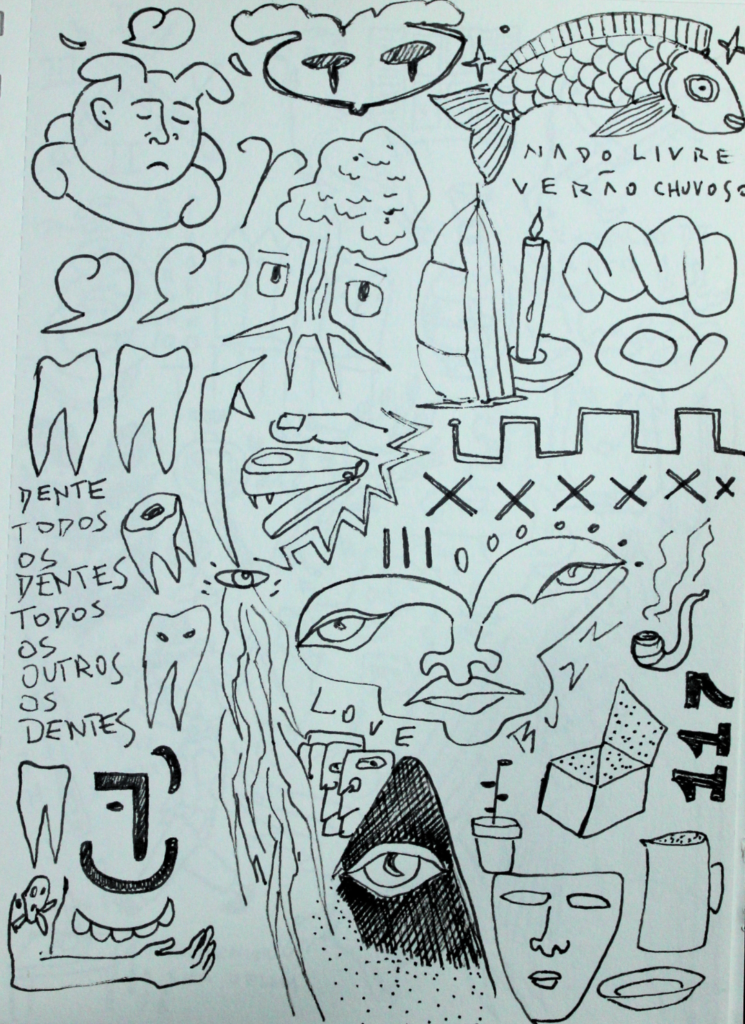 NADO LIVRE
VERÃO CHUVOSO
DENTE
TODOS
OS
DENTES
TODOS
OS
OUTROS
OS
DENTES
LOVE
117